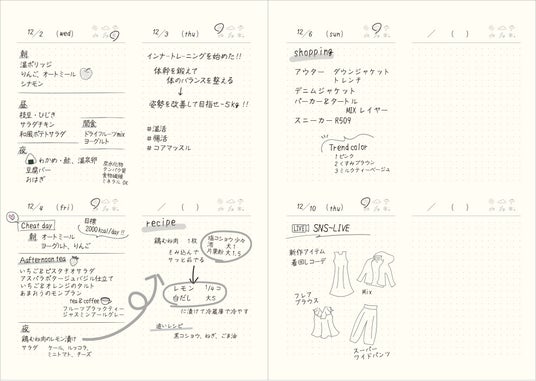 12/2 (wed)
朝
温ポリッジ
りんご、オートミール
シナモン
昼
枝豆・ひじき
サラダチキン
和風ポテトサラダ
間食
ドライフルーツmix
ヨーグルト
夜
わかめ・鮭、温泉卵
豆腐バー
おはぎ
炭水化物
タンパク質
食物繊維
ミネラル OK
12/3 (thu)
インナートレーニングを始めた!!
体幹を鍛えて
体のバランスを整える
↓
姿勢を改善して目指せ-5kg!!
#温活
#腸活
#コアマッスル
12/4 (fri)
Cheat day
目標
2000kcal/day!!
朝 オートミール
ヨーグルト、りんご
Aafternoon tea
いちごとピスタチオサラダ
アスパラポタージュバジル仕立て
いちごとオレンジのタルト
あまおうのモンブラン
tea&coffee
フルーツブラックティー
ジャスミンアールグレー
夜
鶏むね肉のレモン漬け
サラダ ケール、ルッコラ、
ミニトマト、チーズ
/ ( )
recipe
鶏むね肉 1枚
もみ込んで
サッと茹でる
塩コショウ 少々
酒 大1
片栗粉 大1.5
レモン 1/4コ
白だし 大5
に漬けて冷蔵庫で冷やす
追いレシピ
黒コショウ、ねぎ、ごま油
12/6 (sun)
shopping
アウター ダウンジャケット
トレンチ
デニムジャケット
パーカー&タートル
MIX レイヤー
スニーカー R509
Trend color
1 ピンク
2 くすみブラウン
3 ミルクティーベージュ
/ ( )
12/10 (thu)
LIVE SNS-LIVE
新作アイテム
着回しコーデ
フレア
ブラウス
Mix
スーパー
ワイドパンツ
/ ( )